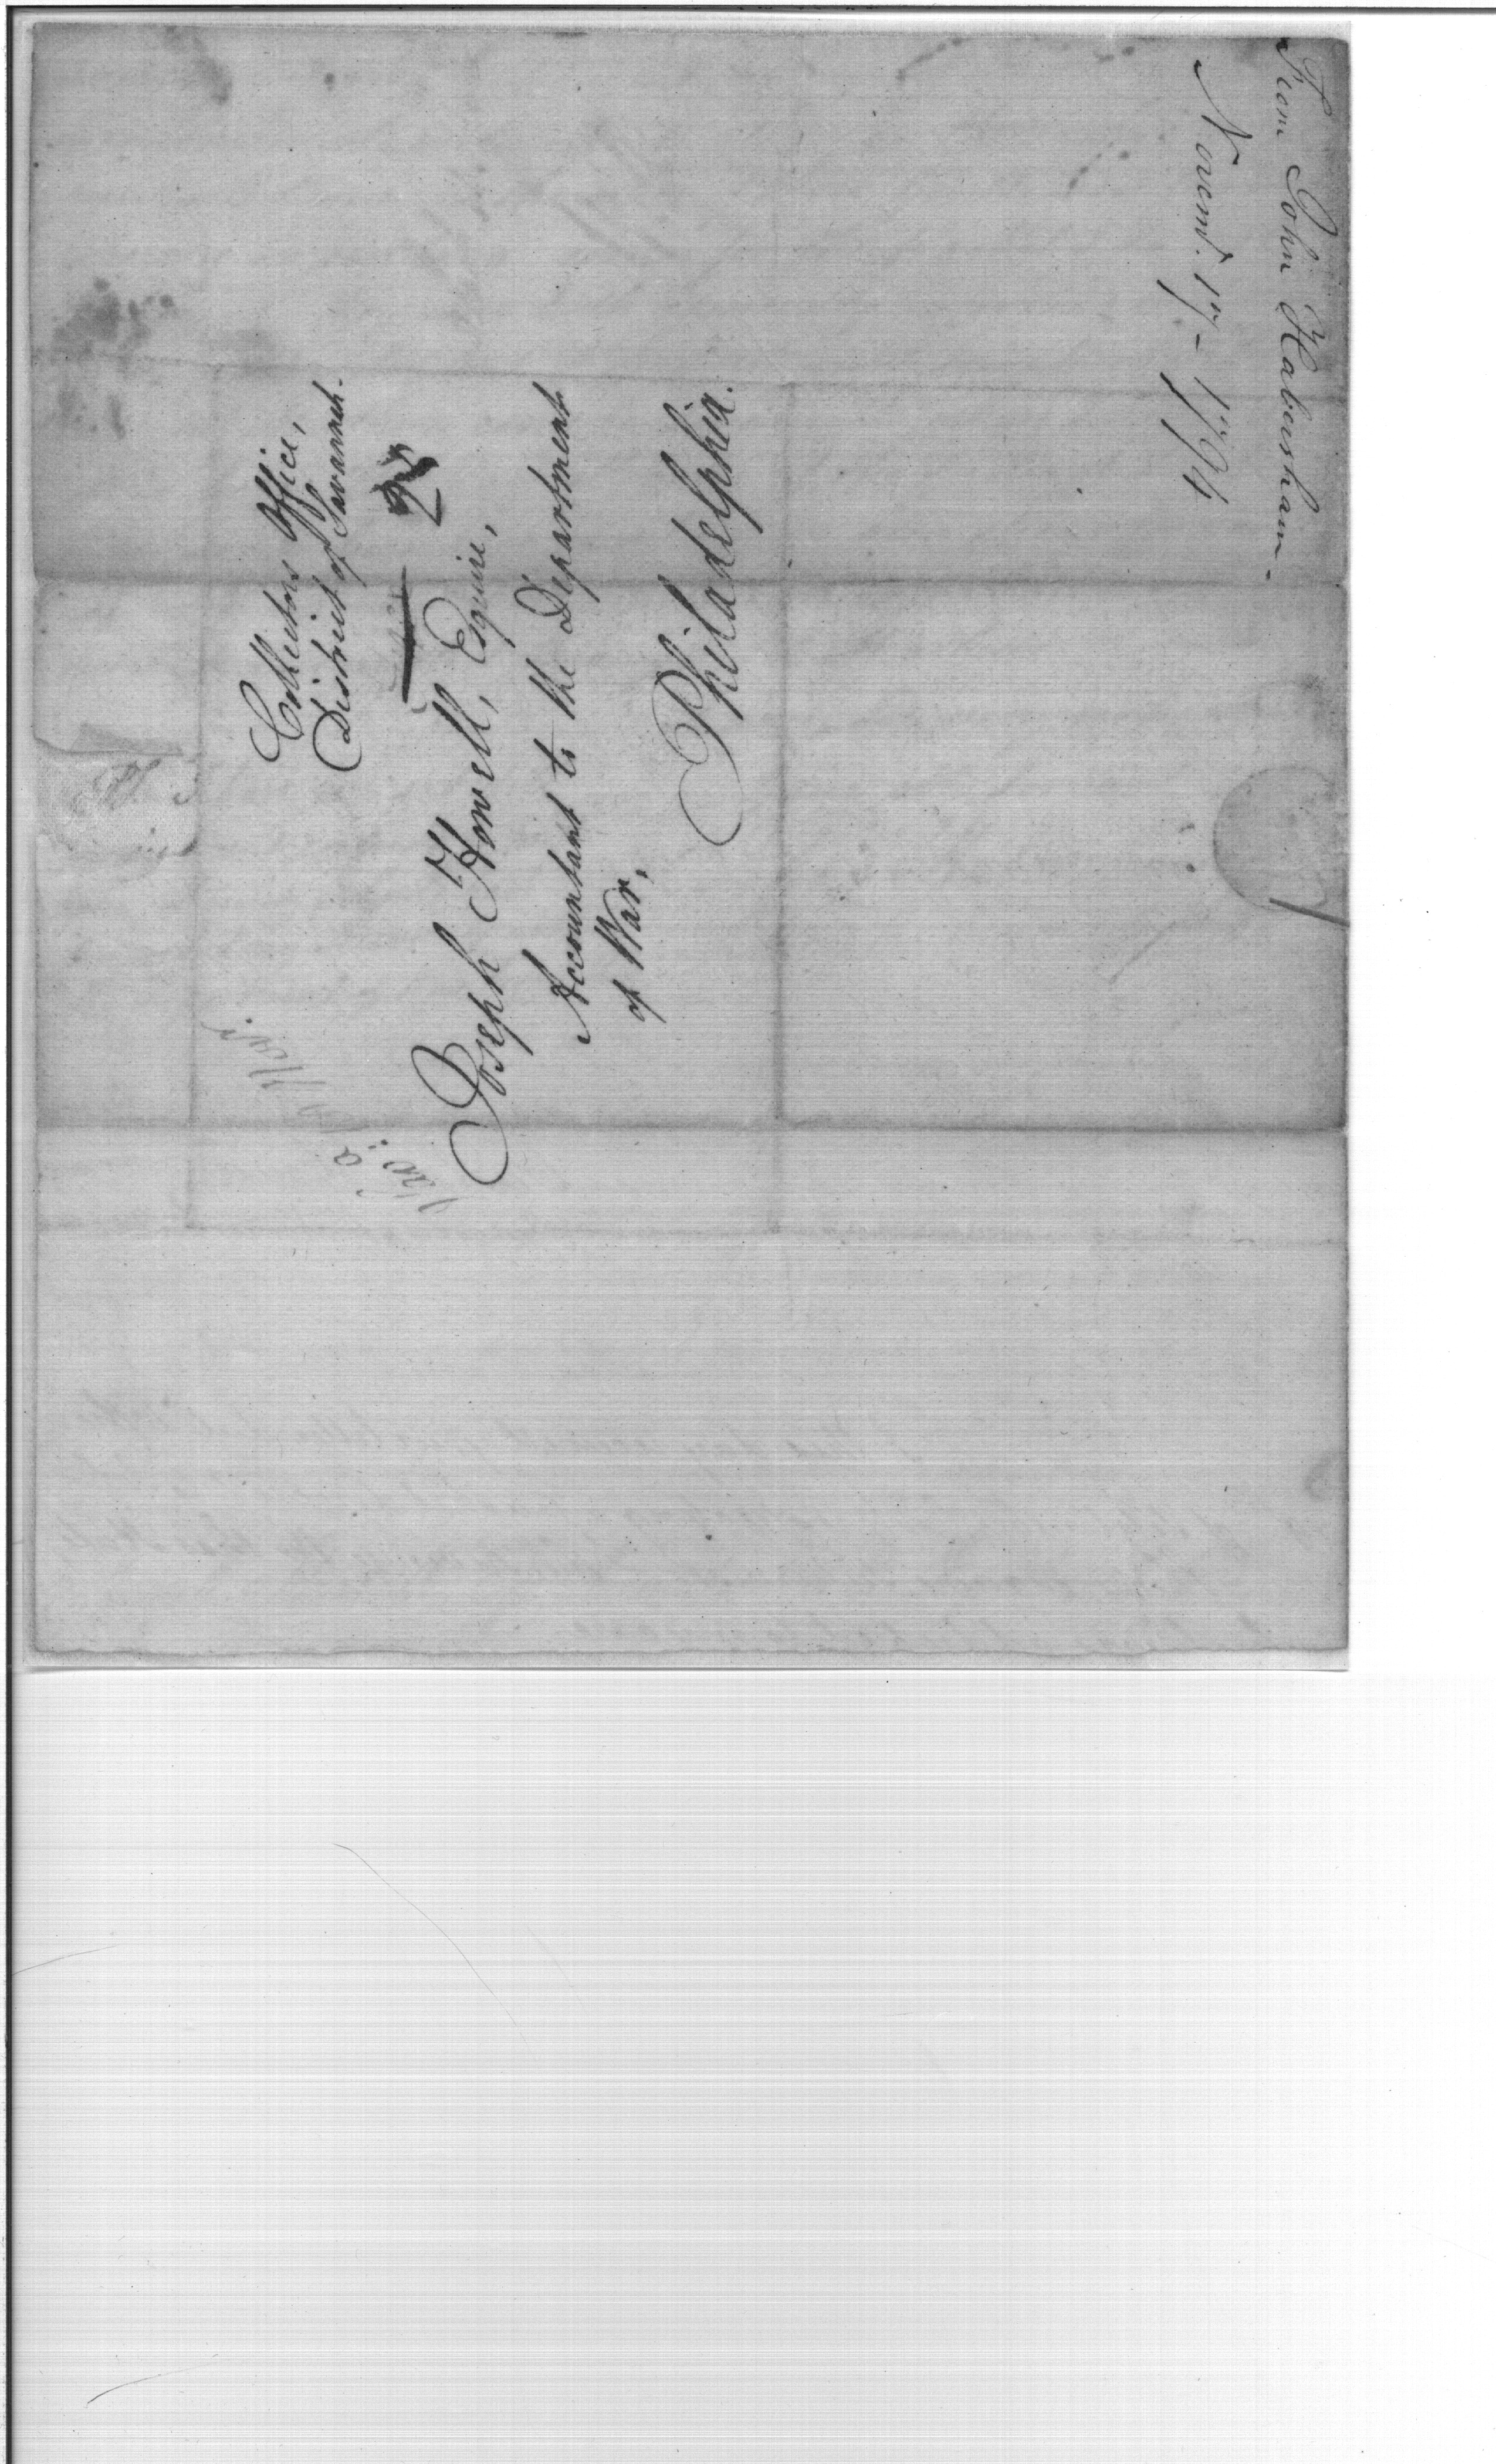 From John Habersham
Novemr. 17 - 1794
Collectors Office,
District of Savannah.
Joseph Howell, Esquire,
Accountant to the Department
of War,
Philadelphia.